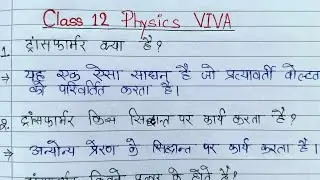 Class 12 Physics VIVA
1. ट्रांसफार्मर क्या है?
→ यह एक ऐसा साधन है जो प्रत्यावर्ती वोल्टता
को परिवर्तित करता है।
2. ट्रांसफार्मर किस सिद्धान्त पर कार्य करता है?
→ अन्योन्य प्रेरण के सिद्धान्त पर कार्य करता है।
ट्रांसफार्मर कितने प्रकार के होते हैं?